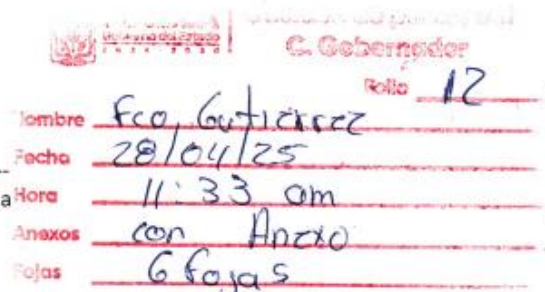 Gobierno del Estado
C. Gobernador
Folio 12
Nombre Fco, Gutierrez
Fecha 28/04/25
a Hora 11:33 am
Anexos con Anexo
Fojas 6 fojas